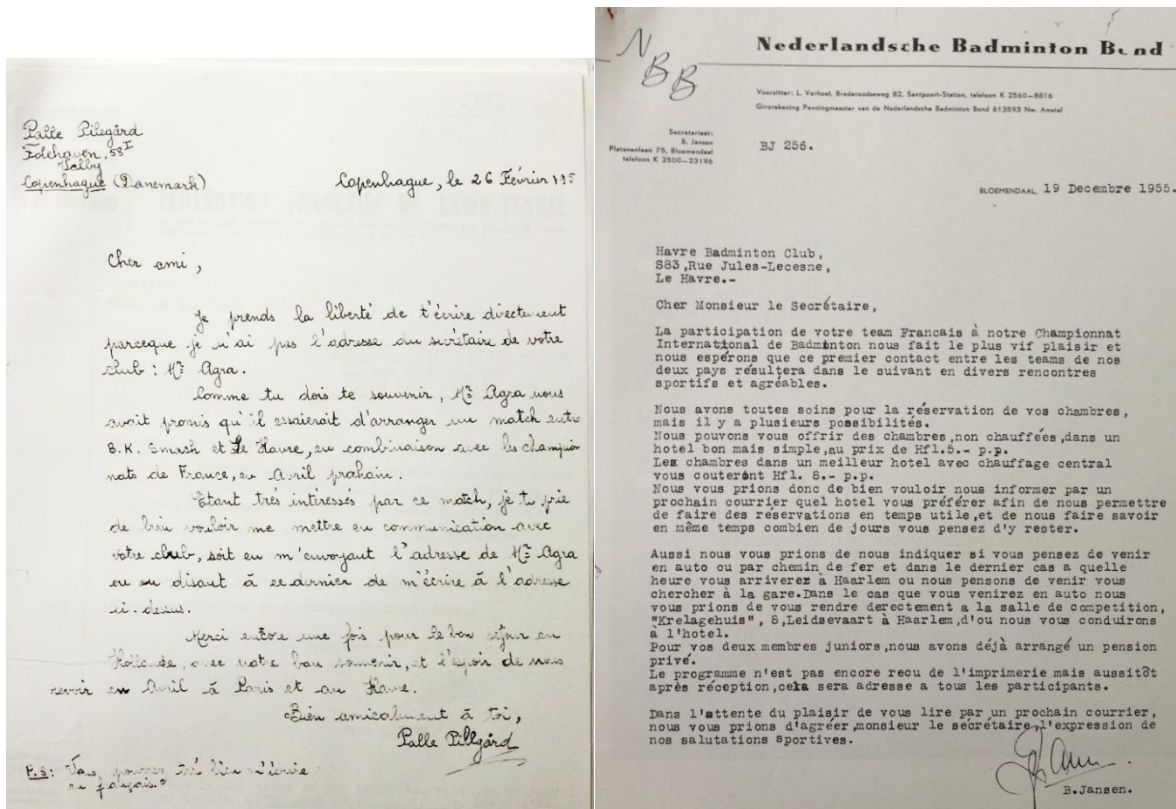 Palle Pilegård
Folehaven, 58 I
Valby
Copenhague (Danemark)
Copenhague, le 26 Février 195
Cher ami,
Je prends la liberté de t'écrire directement
parceque je n'ai pas l'adresse du secrétaire de votre
club : Mr Agra.
Comme tu dois te souvenir, Mr Agra nous
avait promis qu'il essaierait d'arranger un match entre
B.K. Smash et Le Havre, en combinaison avec les champion
nats de France, en Avril prochain.
Etant très intéressés par ce match, je te prie
de bien vouloir me mettre en communication avec
votre club, soit en m'envoyant l'adresse de Mr Agra
ou en disant à ce dernier de m'écrire à l'adresse
ci-dessus.
Merci encore une fois pour le bon séjour en
Hollande, avec votre bon souvenir, et l'espoir de nous
revoir en Avril à Paris et au Havre.
Bien amicalement à toi,
Palle Pillgård
P.S: bien m'écrire
en français.
NBB
Nederlandsche Badminton Bond
Voorzitter: L. Verhoef, Brederodseweg 82, Santpoort-Station, telefoon K 2560-8816
Girorekening Penningmeester van de Nederlandsche Badminton Bond 613593 Nw. Amstel
Secretariaat:
B. Jansen
Platanenlaan 75, Bloemendaal
telefoon K 2500-23196
BJ 256.
BLOEMENDAAL, 19 Decembre 1955.
Havre Badminton Club,
S83,Rue Jules-Lecesne,
Le Havre.-
Cher Monsieur le Secrétaire,
La participation de votre team Francais à notre Championnat
International de Badminton nous fait le plus vif plaisir et
nous espérons que ce premier contact entre les teams de nos
deux pays résultera dans le suivant en divers rencontres
sportifs et agréables.
Nous avons toutes soins pour la réservation de vos chambres,
mais il y a plusieurs possibilités.
Nous pouvons vous offrir des chambres,non chauffées,dans un
hotel bon mais simple,au prix de Hfl.5.- p.p.
Les chambres dans un meilleur hotel avec chauffage central
vous couteront Hfl. 8.- p.p.
Nous vous prions donc de bien vouloir nous informer par un
prochain courrier quel hotel vous préférer afin de nous permettre
de faire des reservations en temps utile,et de nous faire savoir
en même temps combien de jours vous pensez d'y rester.
Aussi nous vous prions de nous indiquer si vous pensez de venir
en auto ou par chemin de fer et dans le dernier cas a quelle
heure vous arriverez à Haarlem ou nous pensons de venir vous
chercher à la gare.Dans le cas que vous venirez en auto nous
vous prions de vous rendre derectement a la salle de competition,
"Krelagehuis", 8,Leidsevaart à Haarlem,d'ou nous vous conduirons
à l'hotel.
Pour vos deux membres juniors,nous avons déjà arrangé un pension
privé.
Le programme n'est pas encore recu de l'imprimerie mais aussitôt
après réception,cela sera adresse a tous les participants.
Dans l'attente du plaisir de vous lire par un prochain courrier,
nous vous prions d'agréer,monsieur le secrétaire,l'expression de
nos salutations sportives.
B.Jansen.